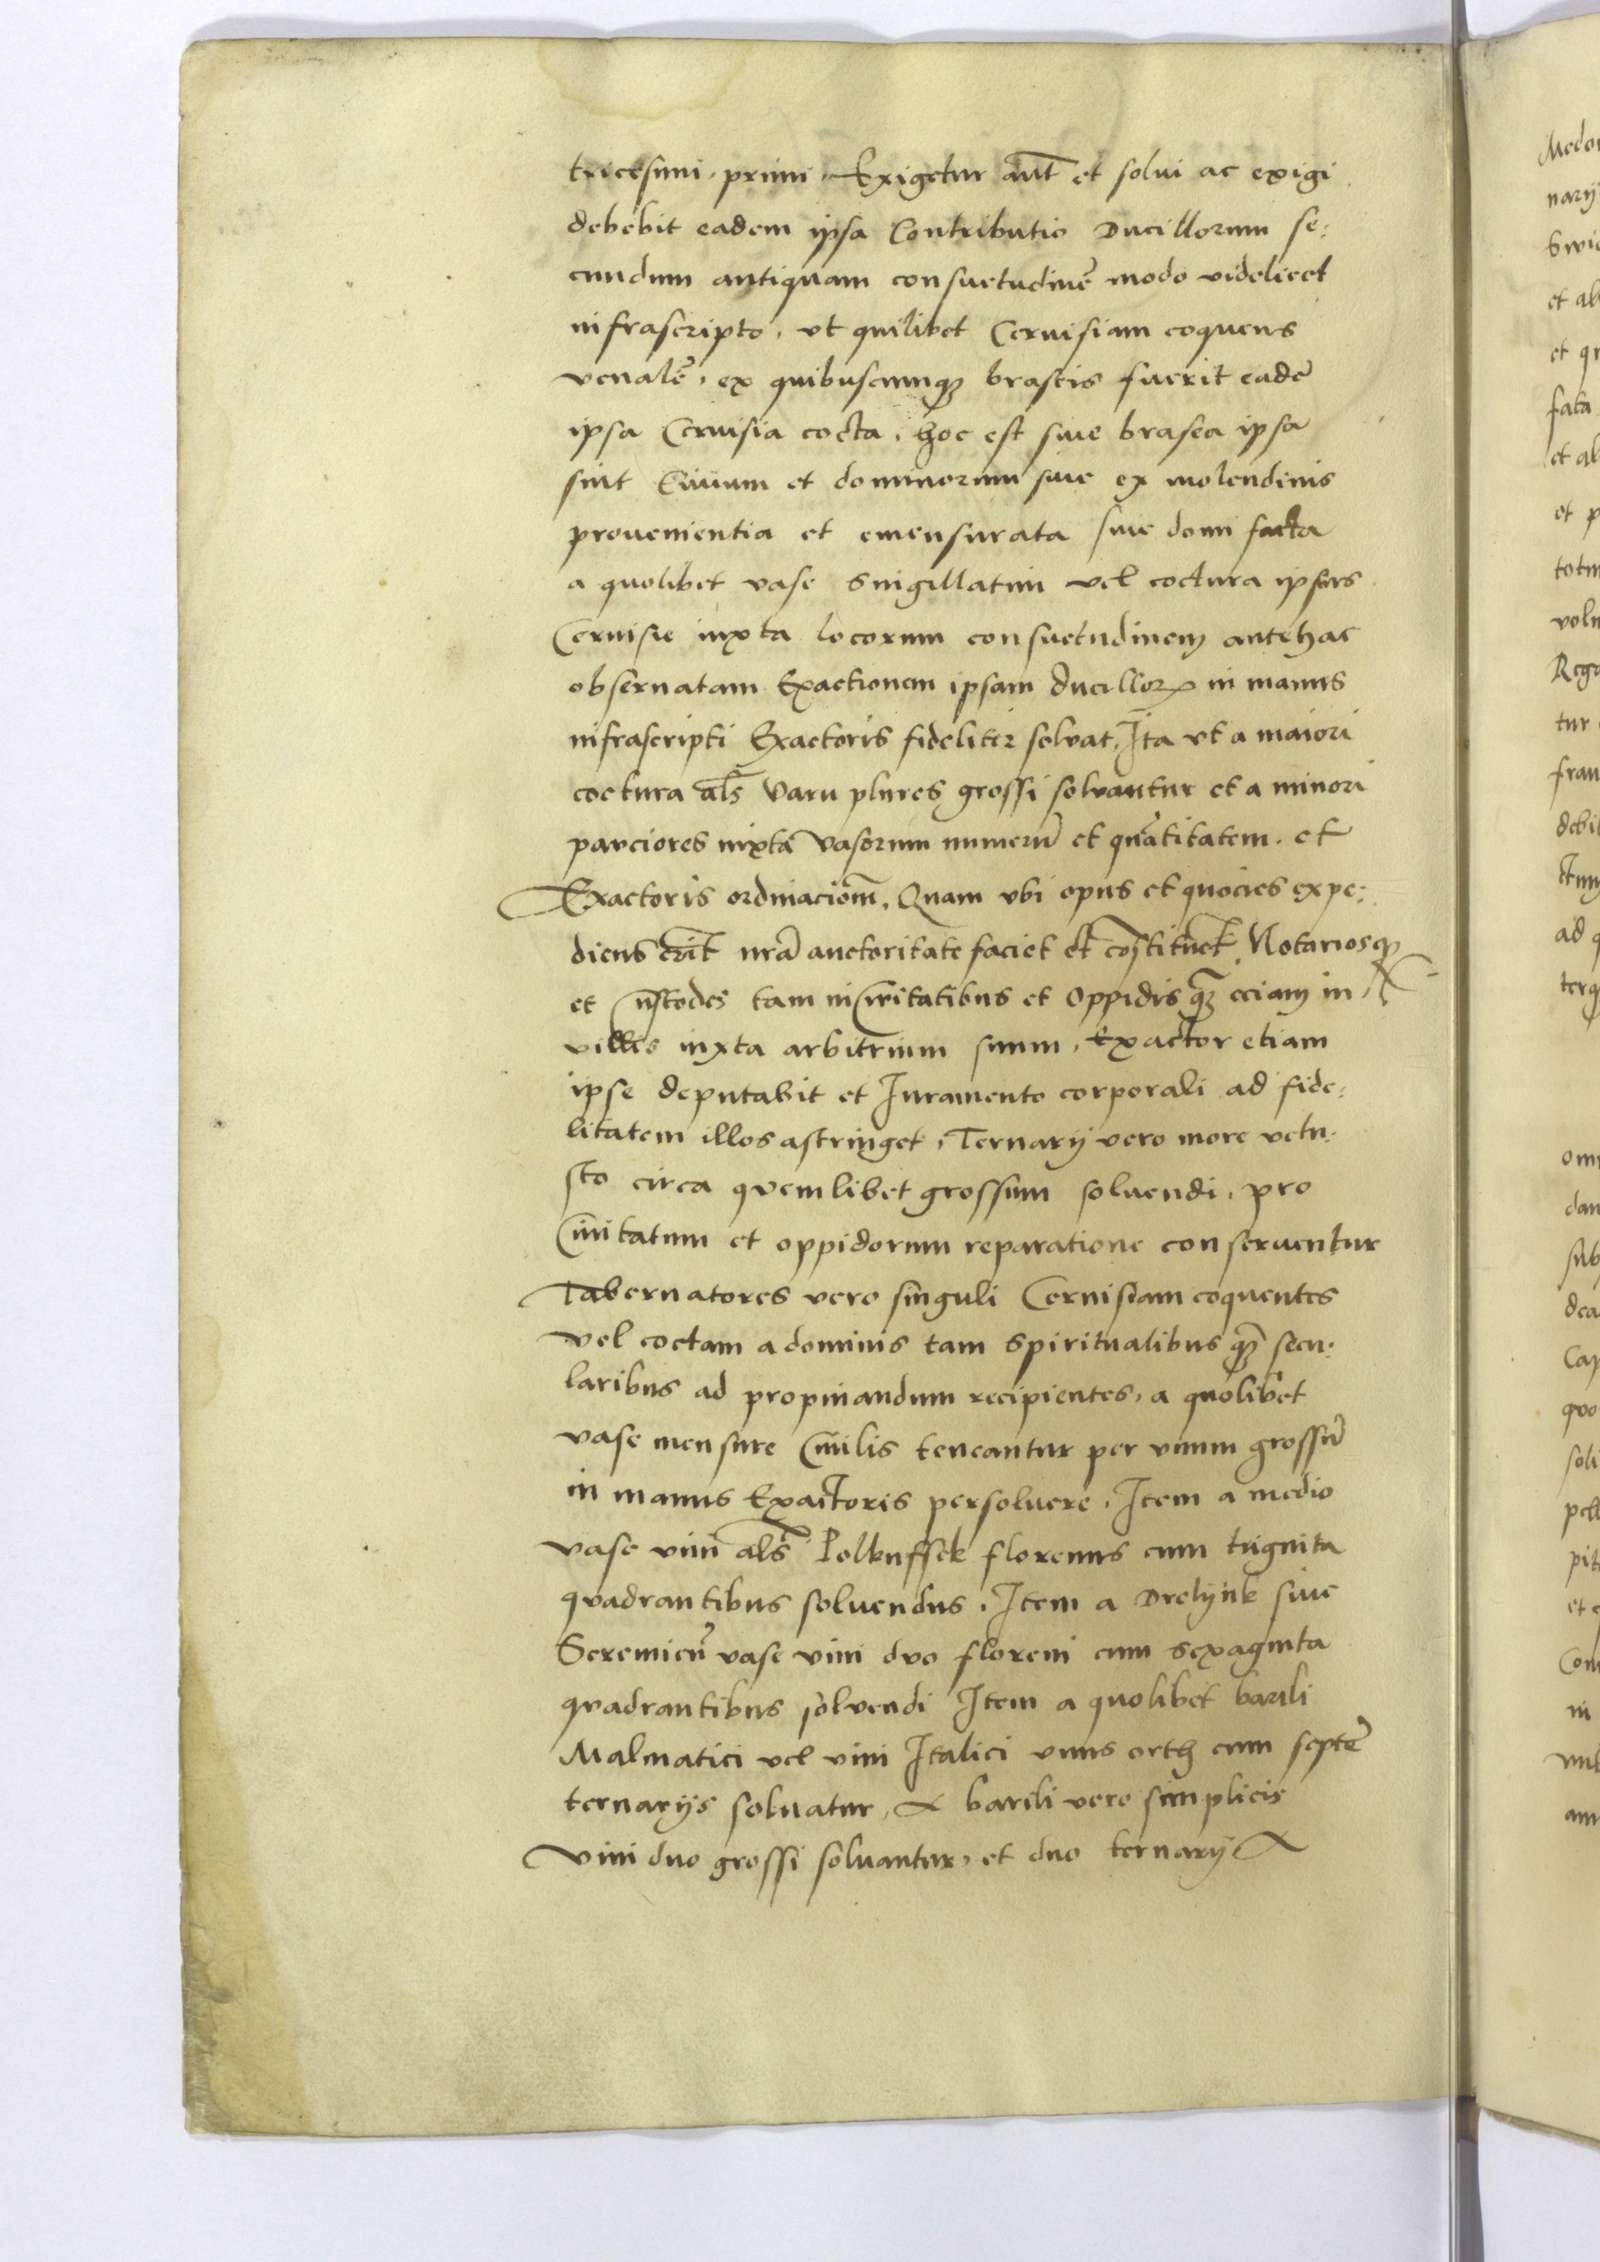 tricesimi primi. Exigetur aut̃ et solui ac exigi
debebit eadem ipsa Contributio Ducillorum se:
cundum antiquam consuetudinẽ modo videlicet
infrascripto, vt quilibet Ceruisiam coquens
venalẽ, ex quibuscumqȝ braseis fuerit eadẽ
ipsa Ceruisia cocta, hoc est siue brasea ipsa
sint Ciuium et dominorum siue ex molendinis
prouenientia et emensurata siue domi facta
a quolibet vase singillatim vel coctura ipsius
Ceruisie iuxta locorum consuetudinem antehac
obseruatam Exactionem ipsam ducilloꝝ in manus
infrascripti Exactoris fideliter soluat, Ita vt a maiori
coctura al̃s Varu plures grossi soluantur et a minori
parciores iuxta Vasorum numerũ et quãtitatem. et
Exactoris ordinaciom̃, Quam vbi opus et quocies expe:
diens erit nr̃a auctoritate faciet et constituet Notariosqȝ
et Custodes tam in Ciuitatibus et Oppidis qȝ̃ eciam in
villis iuxta arbitrium suum, Exactor etiam
ipse deputabit et Iuramento corporali ad fide:
litatem illos astringet, Ternarij vero more vetu:
sto circa quemlibet grossum soluendi, pro
Ciuitatum et oppidorum reparatione conseruentur
Tabernatores vero singuli Ceruisiam coquentes
vel coctam a dominis tam Spiritualibus qȝ̃ secu:
laribus ad propinandum recipientes, a quolibet
vase mensure Ciuilis teneantur per vnum grossũ
in manus Exactoris persoluere, Item a medio
vase vini al̃s Polkuffek florenus cum triginta
quadrantibus soluendus, Item a Drelynk siue
Seremicñ vase vini duo floreni cum sexaginta
quadrantibus soluendi Item a quolibet barili
Malmatici vel vini Italici vnus orth cum septẽ
ternarijs soluatur, A barili vero simplicis
vini duo grossi soluantur, et duo ternarij A
Medo
narij
et ab
fata
et ab
et p
Rega
debit
ad q
omn
dan
sub
dea
Cap
quo
soli